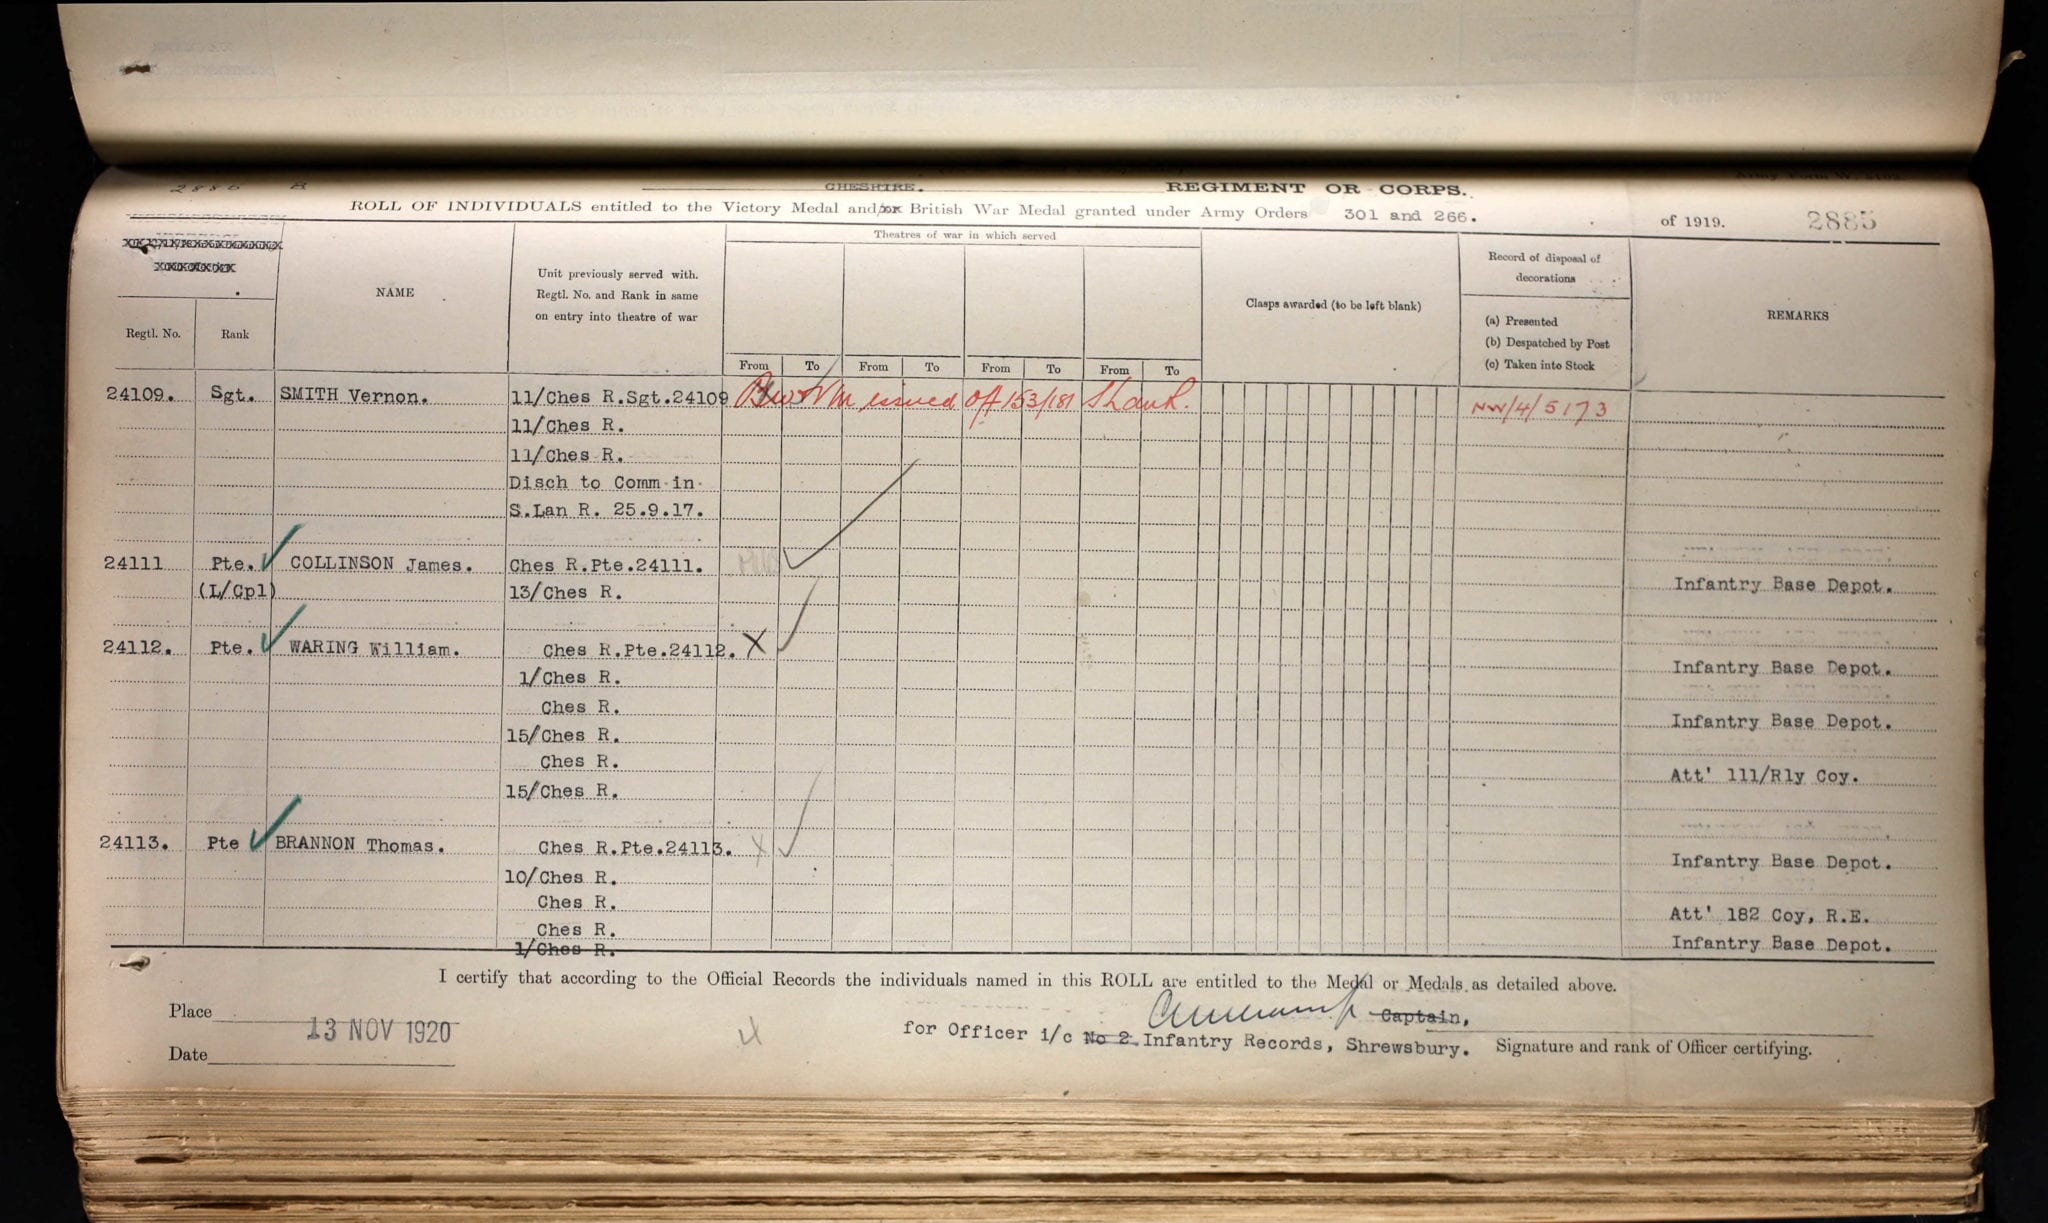 CHESHIRE. REGIMENT OR CORPS.
ROLL OF INDIVIDUALS entitled to the Victory Medal and/or British War Medal granted under Army Orders 301 and 266. of 1919. 2885
Theatres of war in which served
Regtl. No. Rank NAME
Unit previously served with.
Regtl. No. and Rank in same
on entry into theatre of war
From To From To From To From To
Clasps awarded (to be left blank)
Record of disposal of
decorations
(a) Presented
(b) Despatched by Post
(c) Taken into Stock
REMARKS
24109. Sgt. SMITH Vernon. 11/Ches R.Sgt.24109 BW & VM issued off 153/181 S Lan R. NW/4/5173
11/Ches R.
11/Ches R.
Disch to Comm in
S.Lan R. 25.9.17.
24111 Pte. COLLINSON James. Ches R.Pte.24111.
(L/Cpl) 13/Ches R. Infantry Base Depot.
24112. Pte. WARING William. Ches R.Pte.24112. X Infantry Base Depot.
1/Ches R.
Ches R. Infantry Base Depot.
15/Ches R.
Ches R. Att' 111/Rly Coy.
15/Ches R.
24113. Pte BRANNON Thomas. Ches R.Pte.24113. X Infantry Base Depot.
10/Ches R.
Ches R. Att' 182 Coy, R.E.
Ches R. Infantry Base Depot.
1/Ches R.
I certify that according to the Official Records the individuals named in this ROLL are entitled to the Medal or Medals as detailed above.
Place
13 NOV 1920
Date
Captain,
for Officer i/c No 2. Infantry Records, Shrewsbury. Signature and rank of Officer certifying.